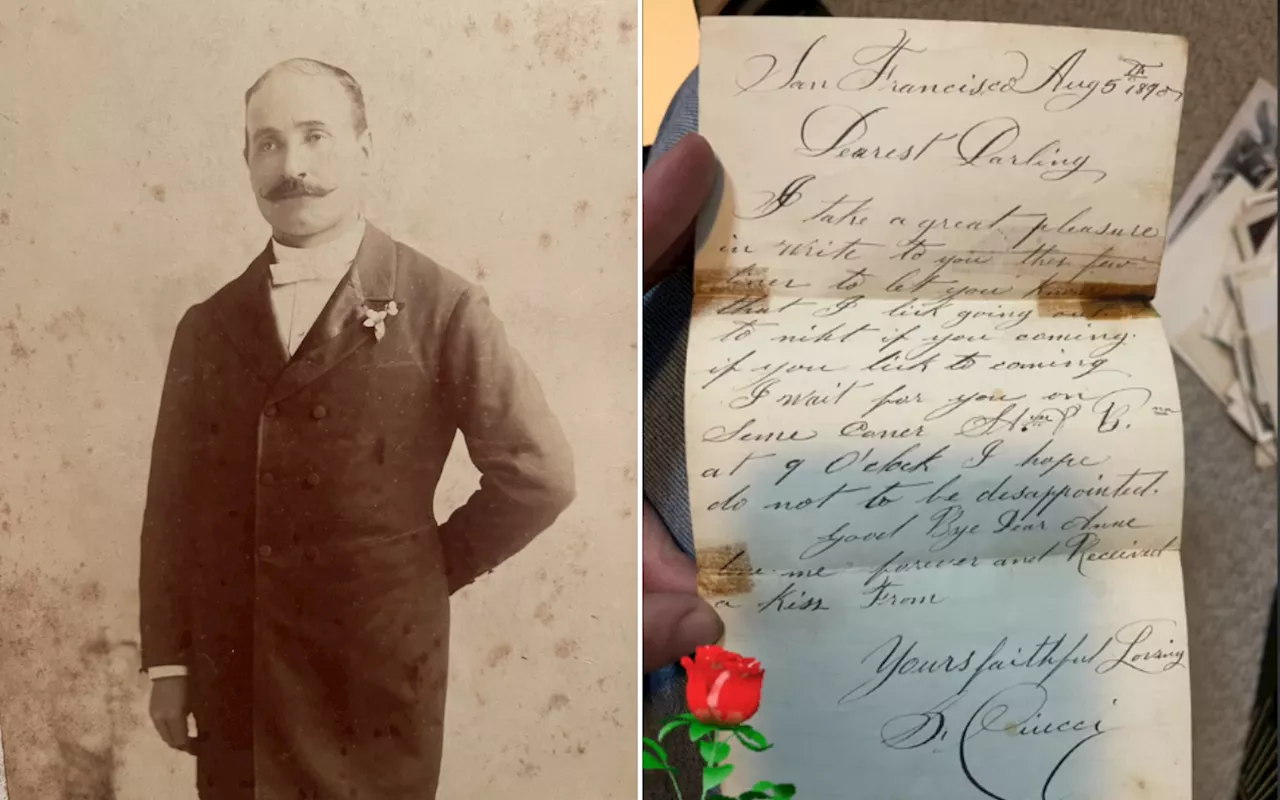 San Francisco Aug 5th 189
Dearest Darling
I take a great pleasure
in write to you this few
to let you know
that I lick going out
to niht if you coming.
if you lick to coming
I wait for you on
Same Coner St.
at 9 O'clock I hope
do not to be disappointed.
Good Bye Dear Anne
me forever and Received
a Kiss From
Yours faithful Loving
D. Ciucci